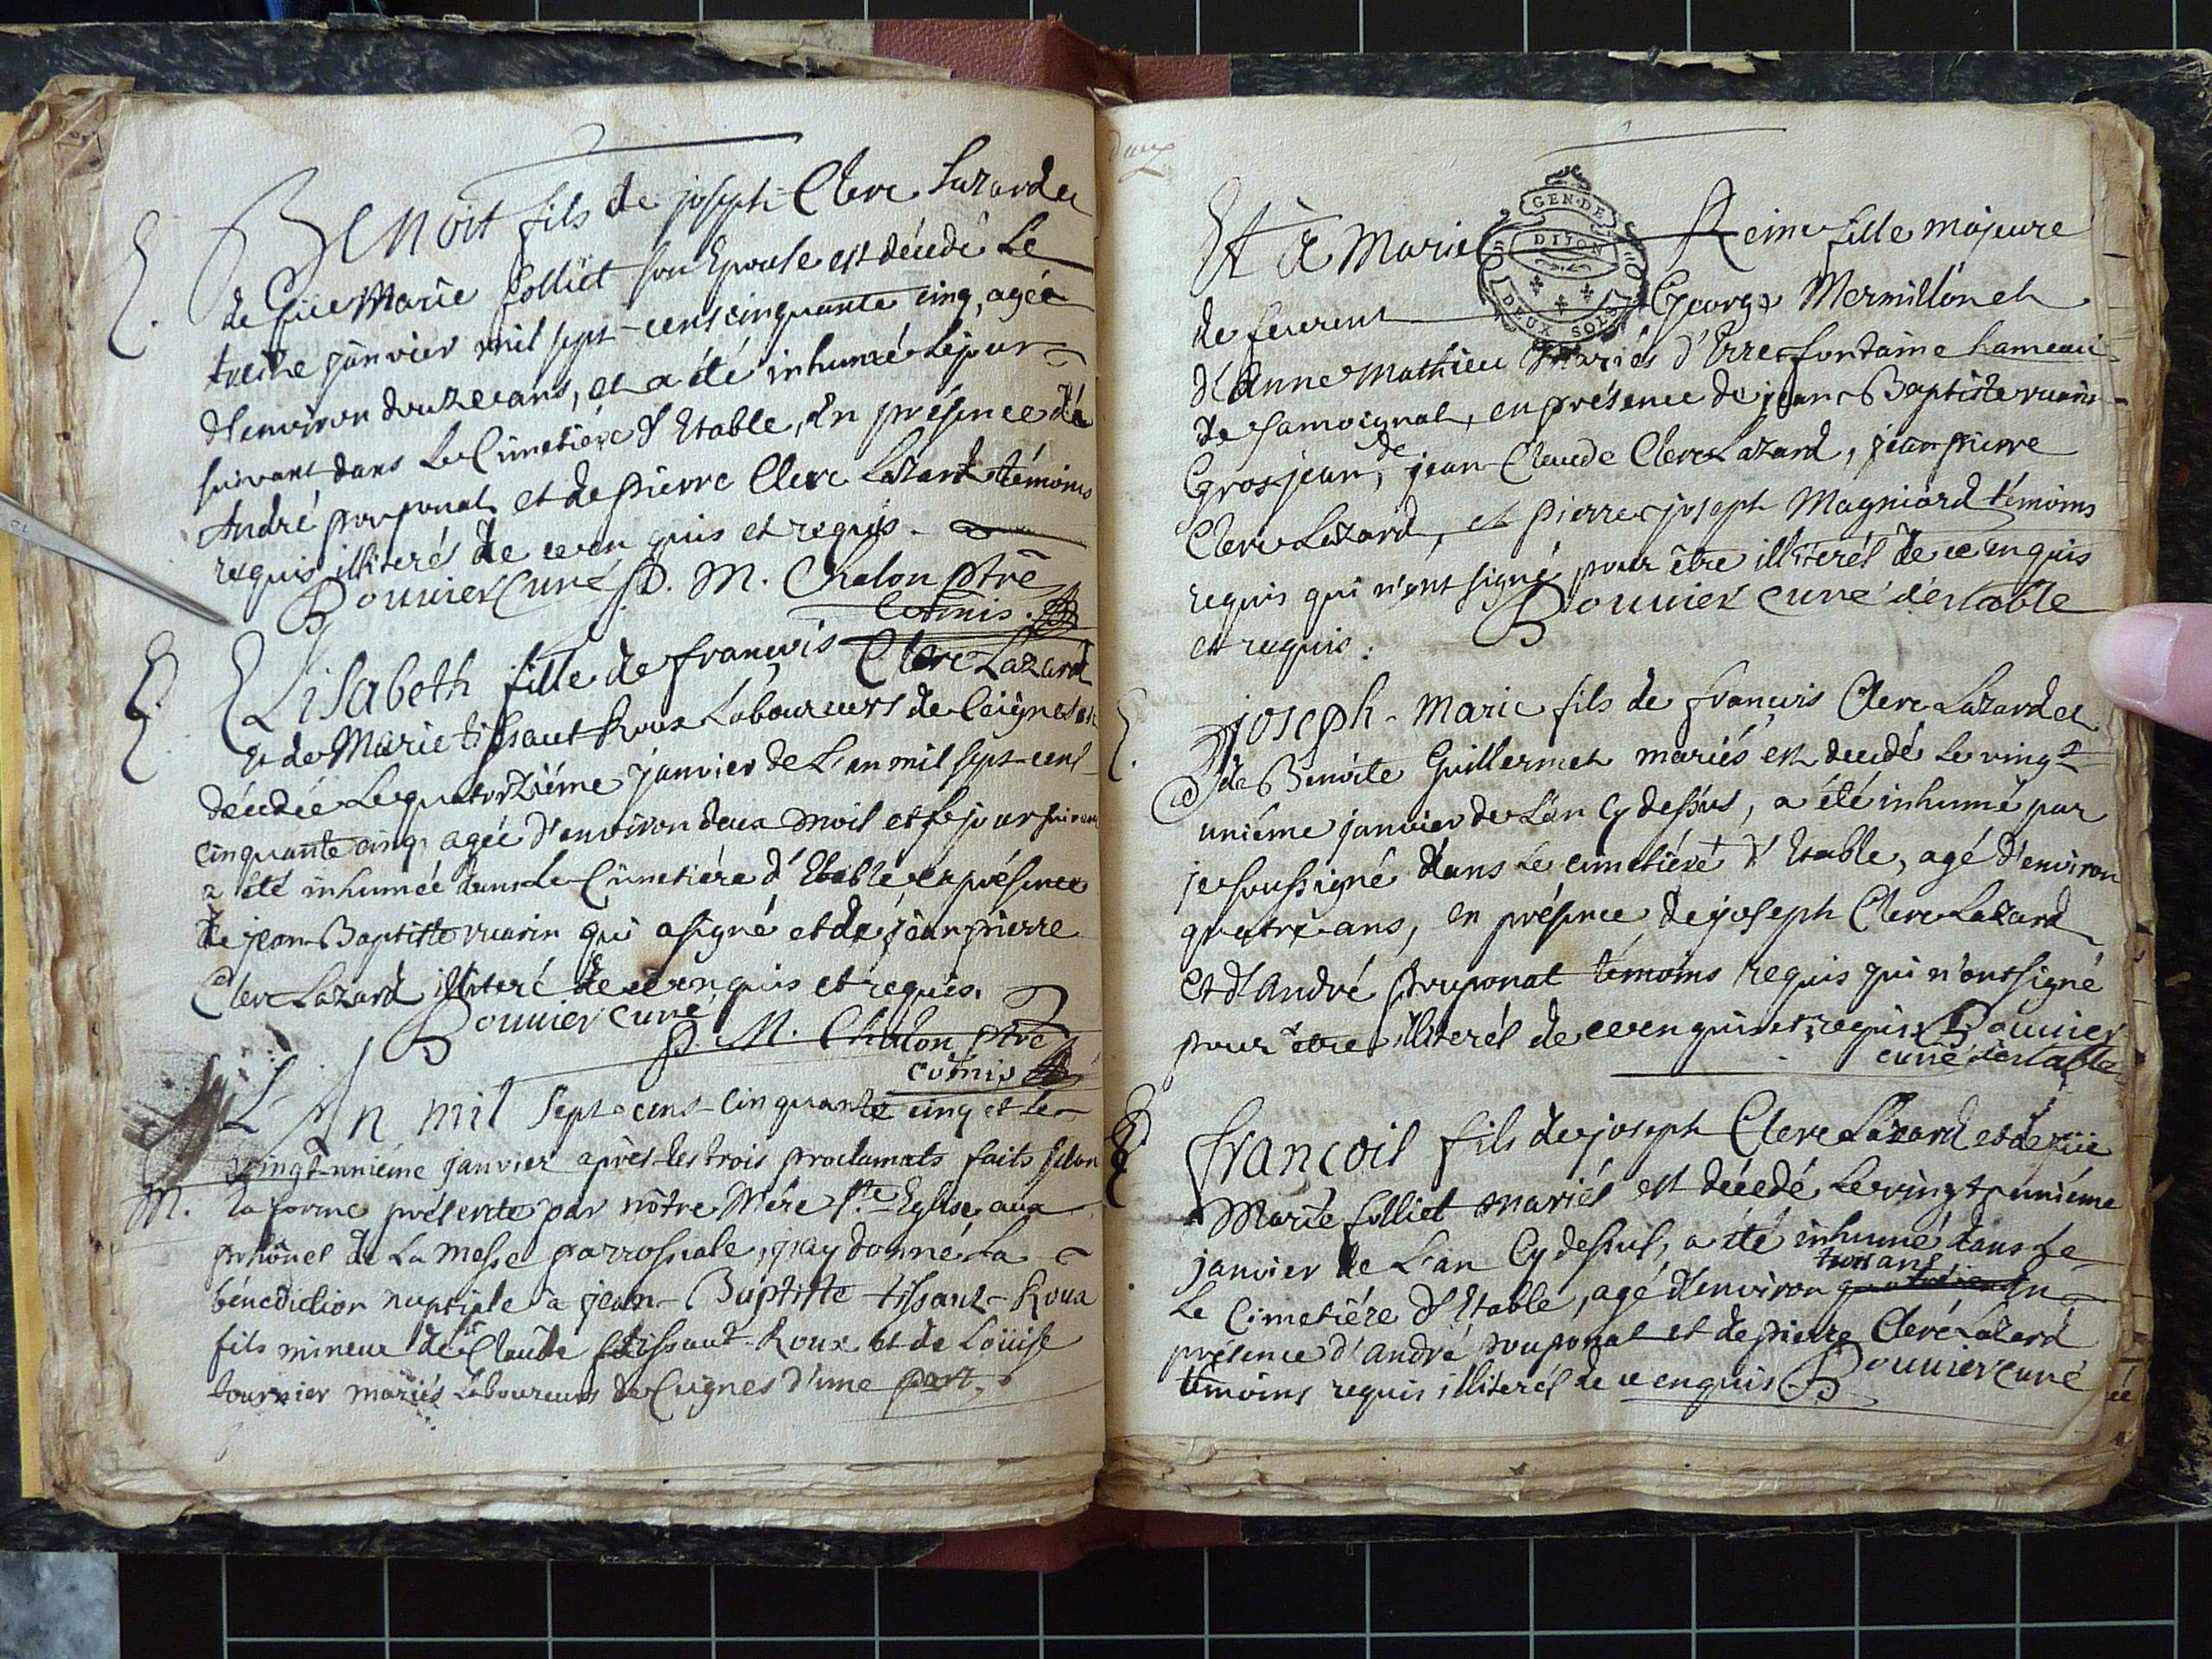 Benoit fils de joseph Clerc Lazard et
de fue Marie folliet son Epouse est décédé Le
treize janvier mil sept-cent cinquante cinq, agée
d'environ douze ans, et a été inhumé Le jour
suivant dans Le Cimetière d'Etable, En présence de
André pouponat et de pierre Clerc Lazard témoins
requis illiterés de ce en quis et requis.
Bouuier Curé P. M. Chalon ptre
Commis.
E.
Elisabeth fille de françois Clerc Lazard
Et de Marie tissaut Roux Laboureurs de Ceignes est
décédée Le quatorziéme janvier de L'an mil sept-cent
cinquante cinq, agée d'environ deux mois et Le jour suivant
a été inhumée dans Le Cimetière d'Etable en présence
de jean-Baptiste vuarin qui a signé et de jean pierre
Clerc Lazard illiteré de ce enquis et requis.
Bouuier curé
P. M. Chalon ptre
comis
L'An mil sept-cent-cinquante cinq et Le
vingt-uniéme janvier après Les trois proclamats faits selon
M. La forme présente par nôtre Mère Ste Eglise aux
prhônes de La Messe parrossiale, j'ay donné La
bénediction nuptiale à jean-Baptiste tissaut-Roux
fils mineur de Claude tissaut-Roux et de Loüise
tournier mariés Laboureurs de Ceignes d'une part,
deux
Et à Marie Reine fille majeure
GEN. DE
DIJON
DEUX SOLS
de George Mermillon et
d'Anne Mathieu Mariés d'Errefontaine hameau
de Samoignat, en présence de jean-Baptiste vuarin
Grosjean, de jean-Claude Clerc Lazard, jean pierre
Clerc Lazard, et pierre joseph Magniard témoins
requis qui n'ont signé pour être illiterés de ce enquis
et requis. Bouuier curé d'estable
joseph-Marie fils de françois Clerc Lazard et
de Benoite Guillermet mariés est decedé Le vingt
uniéme janvier de L'an Cy dessus, a été inhumé par
je soussigné dans Le cimetière d'Etable, agé d'environ
quatre ans, en présence de joseph Clerc Lazard
et d'André pouponat témoins requis qui n'ont signé
pour être illiterés de ce enquis et requis Bouuier
curé d'estable
françois fils de joseph Clerc Lazard et de fue
Marie folliet mariés est décedé Le vingt-uniéme
janvier de L'an Cy dessus, a été inhumé dans Le
trois ans
Le Cimetière d'Etable, agé d'environ En
présence d'André pouponat et de pierre Clerc Lazard
témoins requis illiterés de ce enquis. Bouuier curé